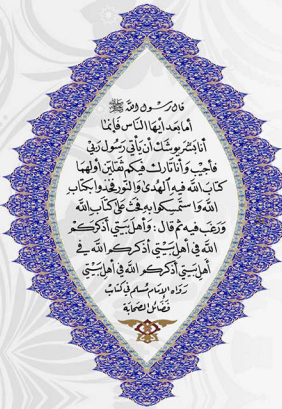 قال رسول الله ﷺ
أما بعد أيها الناس فإنما
أنا بشر يوشك أن يأتي رسول ربي
فأجيب وأنا تارك فيكم ثقلين أولهما
كتاب الله فيه الهدى والنور فخذوا بكتاب
الله واستمسكوا به فحث على كتاب الله
ورغب فيه ثم قال : وأهل بيتي أذكركم
الله في أهل بيتي أذكركم الله في
أهل بيتي أذكركم الله في أهل بيتي
رواه الإمام مسلم في كتاب
فضائل الصحابة